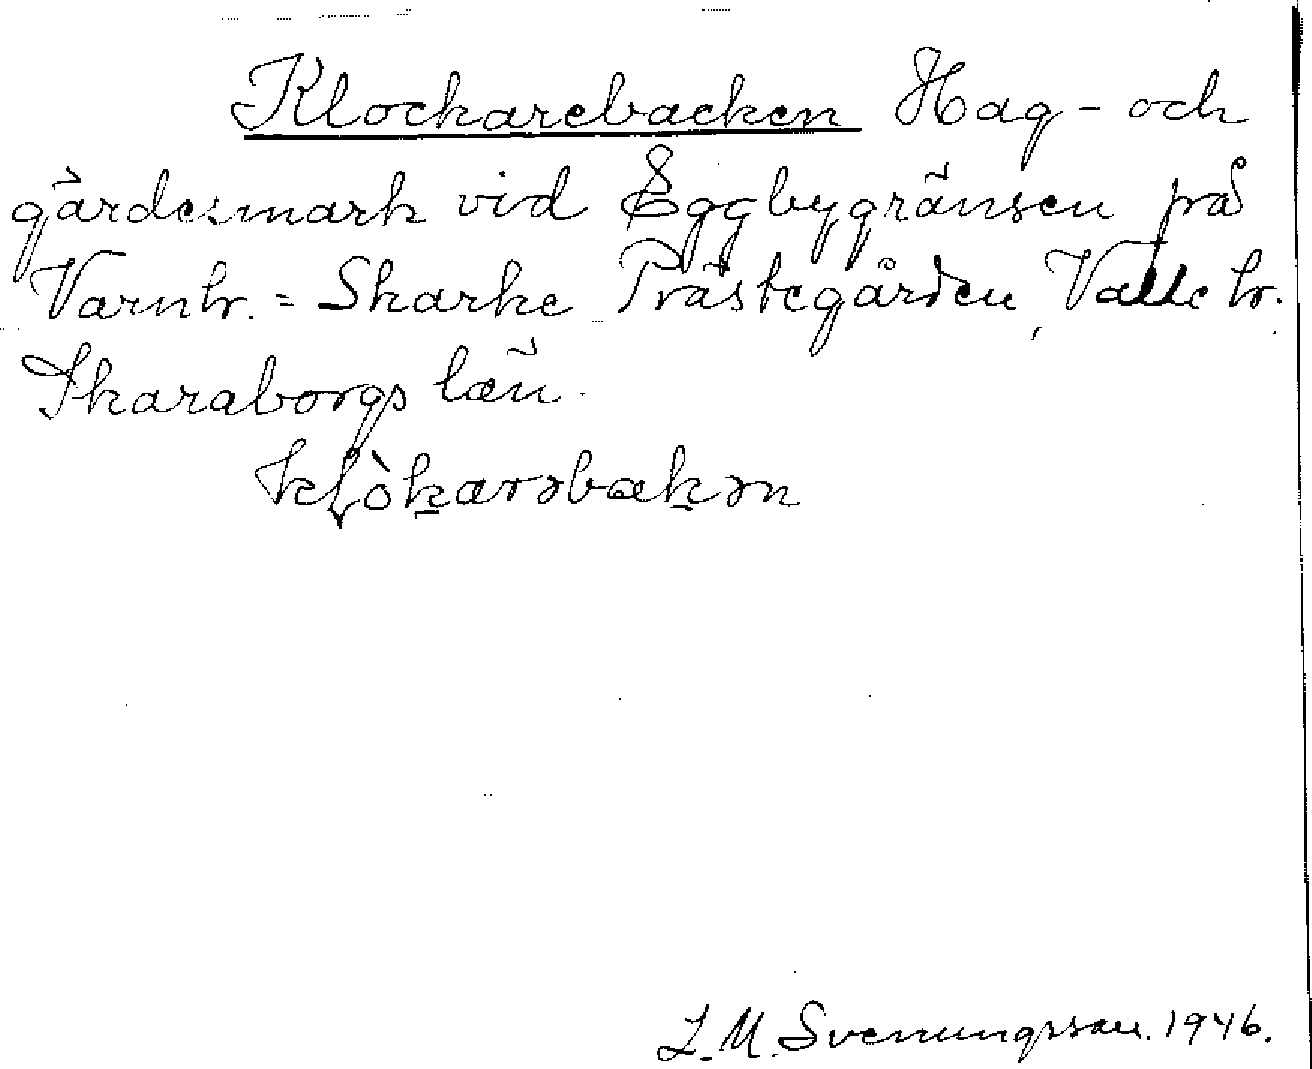 Klockarebacken Hag- och
gärdesmark vid Eggbygränsen på
Varnhr. = Skarke Prästegården, Valle hr.
Skaraborgs län.
kɬòkarəbakən
L. M. Svenungsson. 1946.